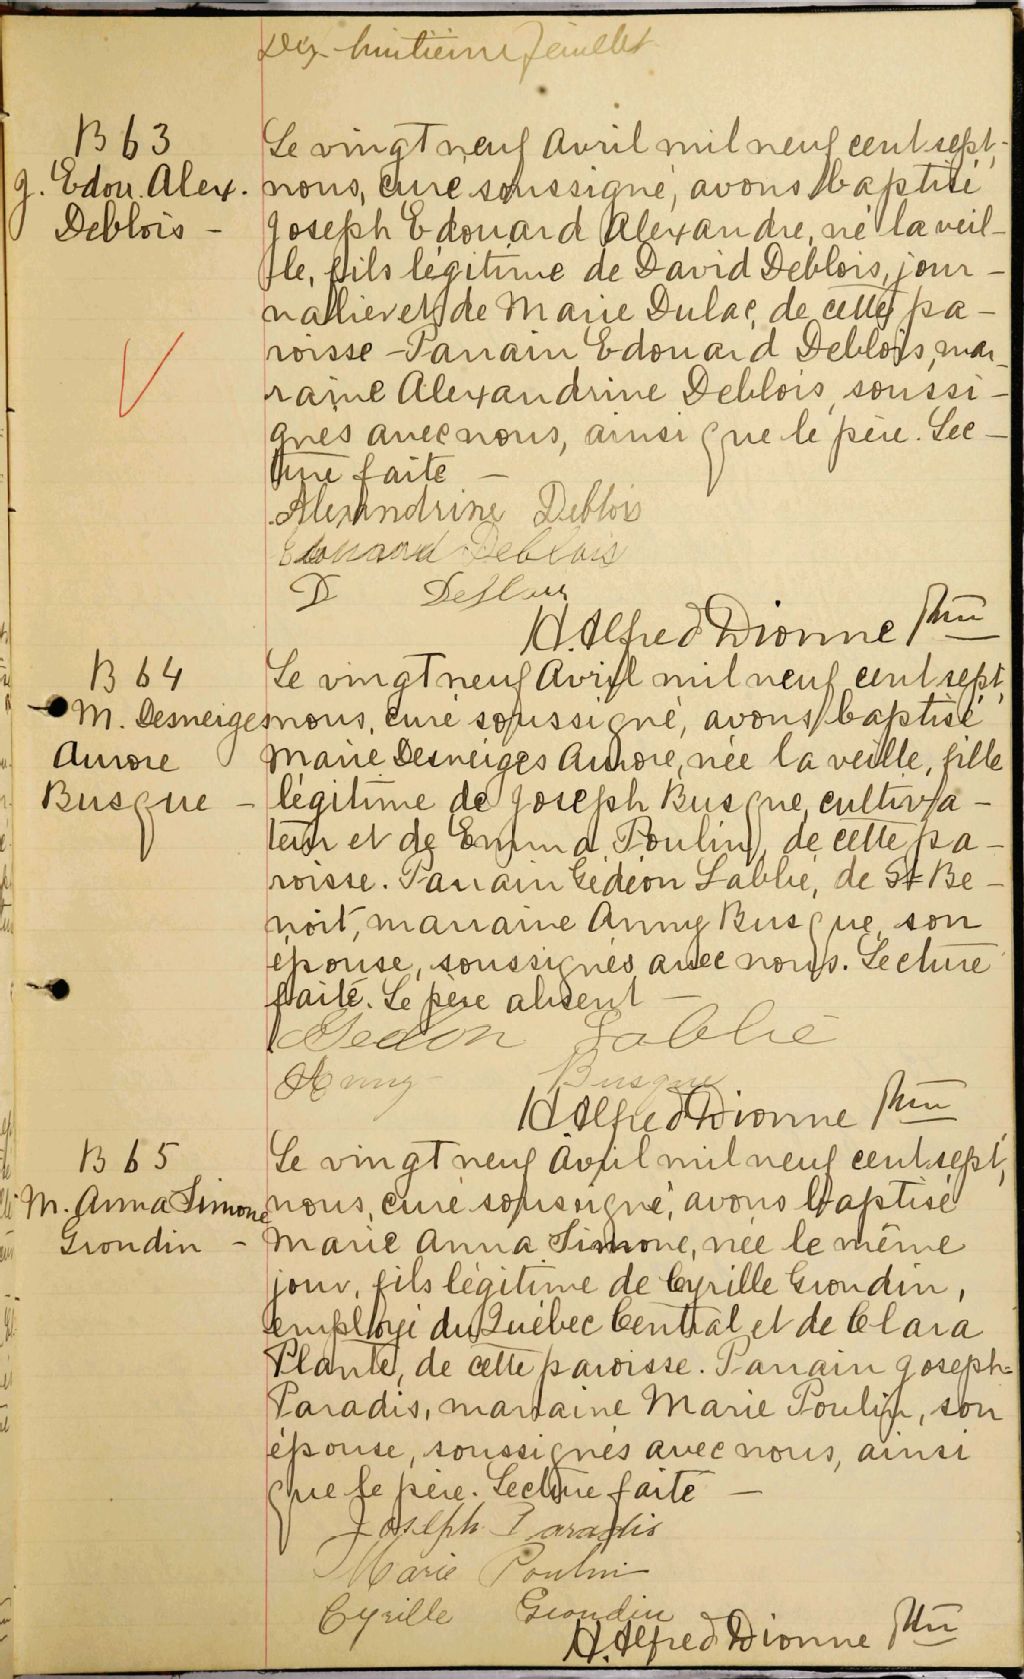 Dix-huitième feuillet
B 63
J. Edou. Alex.
Deblois -
Le vingt neuf Avril mil neuf cent sept,
nous, curé soussigné, avons baptisé
Joseph Edouard Alexandre, né la veil-
le, fils légitime de David Deblois, jour-
nalier et de Marie Dulac, de cette pa-
roisse - Parrain Edouard Deblois, mar-
raine Alexandrine Deblois, soussi-
gnés avec nous, ainsi que le père. Lec-
ture faite -
Alexandrine Deblois
Edouard Deblois
D Deblois
H. Alfred Dionne Ptre
B 64
M. Desneiges
Aurore
Busque -
Le vingt neuf Avril mil neuf cent sept,
nous, curé soussigné, avons baptisé
Marie Desneiges Aurore, née la veille, fille
légitime de Joseph Busque, cultiva-
teur et de Emma Poulin, de cette pa-
roisse. Parrain Gédéon Labbé, de St Be-
noit, marraine Anny Busque, son
épouse, soussignés avec nous. Lecture
faite. Le père absent -
Gedeon Labbé
Anny Busque
H. Alfred Dionne Ptre
B 65
M. Anna Simone
Grondin -
Le vingt neuf Avril mil neuf cent sept,
nous, curé soussigné, avons baptisé
Marie Anna Simone, née le même
jour, fils légitime de Cyrille Grondin,
employé du Québec Central et de Clara
Plante, de cette paroisse. Parrain Joseph
Paradis, marraine Marie Poulin, son
épouse, soussignés avec nous, ainsi
que le père. Lecture faite -
Joseph Paradis
Marie Poulin
Cyrille Grondin
H. Alfred Dionne Ptre